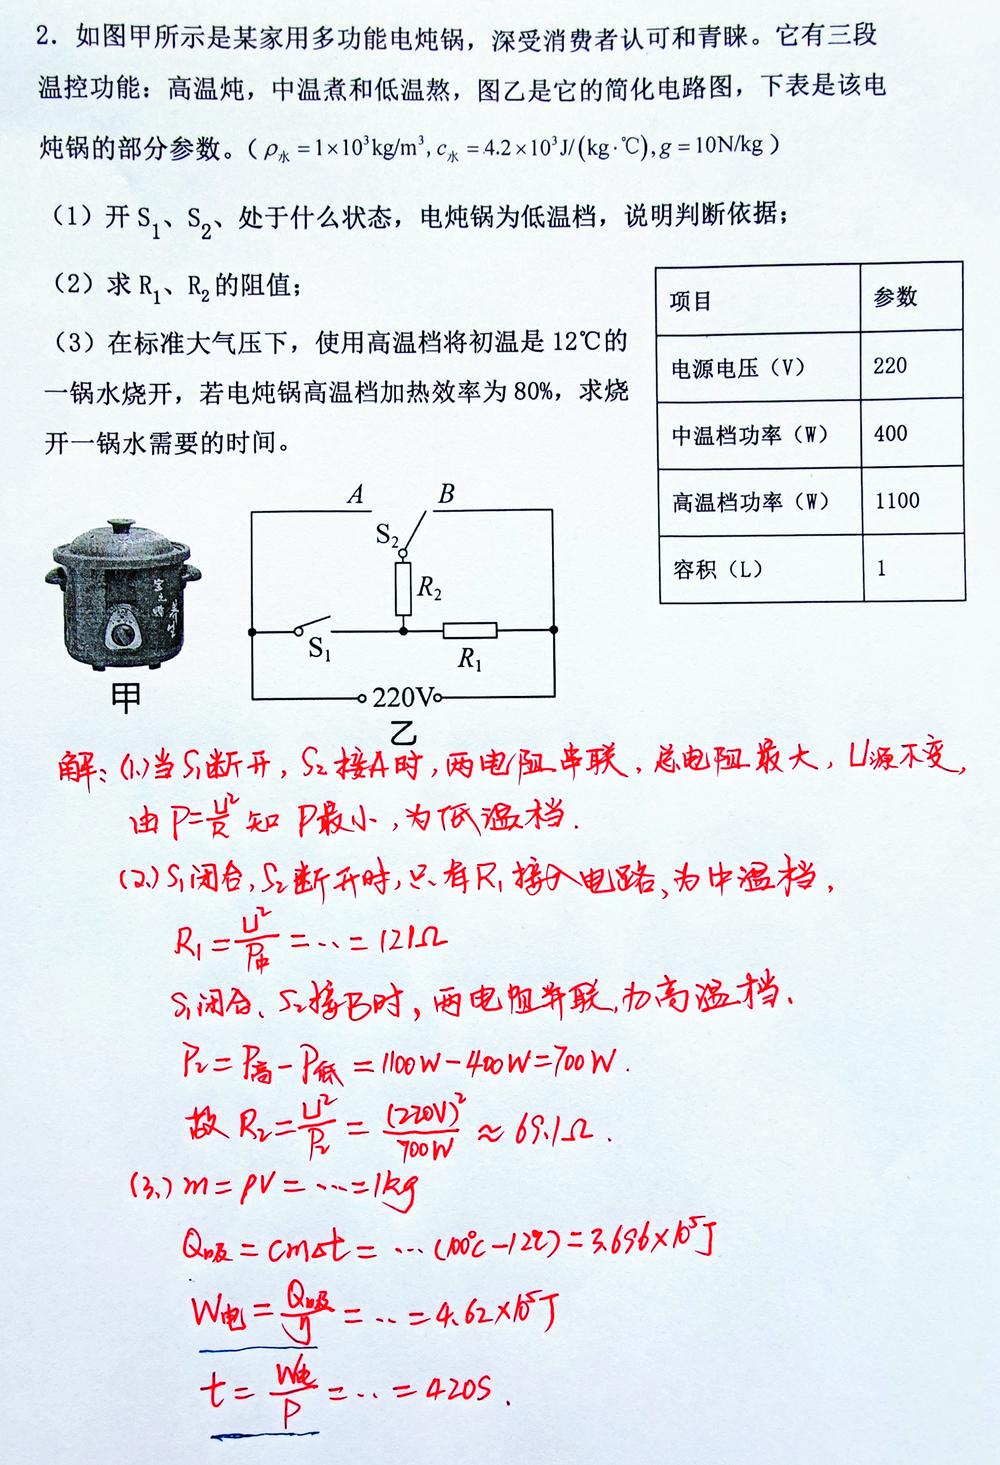 2. 如图甲所示是某家用多功能电炖锅，深受消费者认可和青睐。它有三段
温控功能：高温炖，中温煮和低温熬，图乙是它的简化电路图，下表是该电
炖锅的部分参数。（ρ水 = 1×10³kg/m³, c水 = 4.2×10³J/(kg·℃), g = 10N/kg ）
（1）开 S₁、S₂、处于什么状态，电炖锅为低温档，说明判断依据；
（2）求 R₁、R₂的阻值；
（3）在标准大气压下，使用高温档将初温是 12℃的
一锅水烧开，若电炖锅高温档加热效率为 80%，求烧
开一锅水需要的时间。
项目 参数
电源电压（V） 220
中温档功率（W） 400
高温档功率（W） 1100
容积（L） 1
A B
S₂
R₂
S₁
R₁
220V
甲
乙
解: (1.)当S₁断开, S₂接A时, 两电阻串联, 总电阻最大, U源不变,
由P=U²/R 知 P最小, 为低温档.
(2.) S₁闭合, S₂断开时, 只有R₁接入电路, 为中温档,
R₁=U²/P中=…=121Ω
S₁闭合、S₂接B时, 两电阻并联, 为高温档.
P₂=P高-P低=1100W-400W=700W.
故 R₂=U²/P₂=(220V)²/700W≈69.1Ω.
(3.) m=ρV=…=1kg
Q吸=cmΔt=…(100℃-12℃)=3.696×10⁵J
W电=Q吸/η=…=4.62×10⁵J
t=W电/P=…=420S.